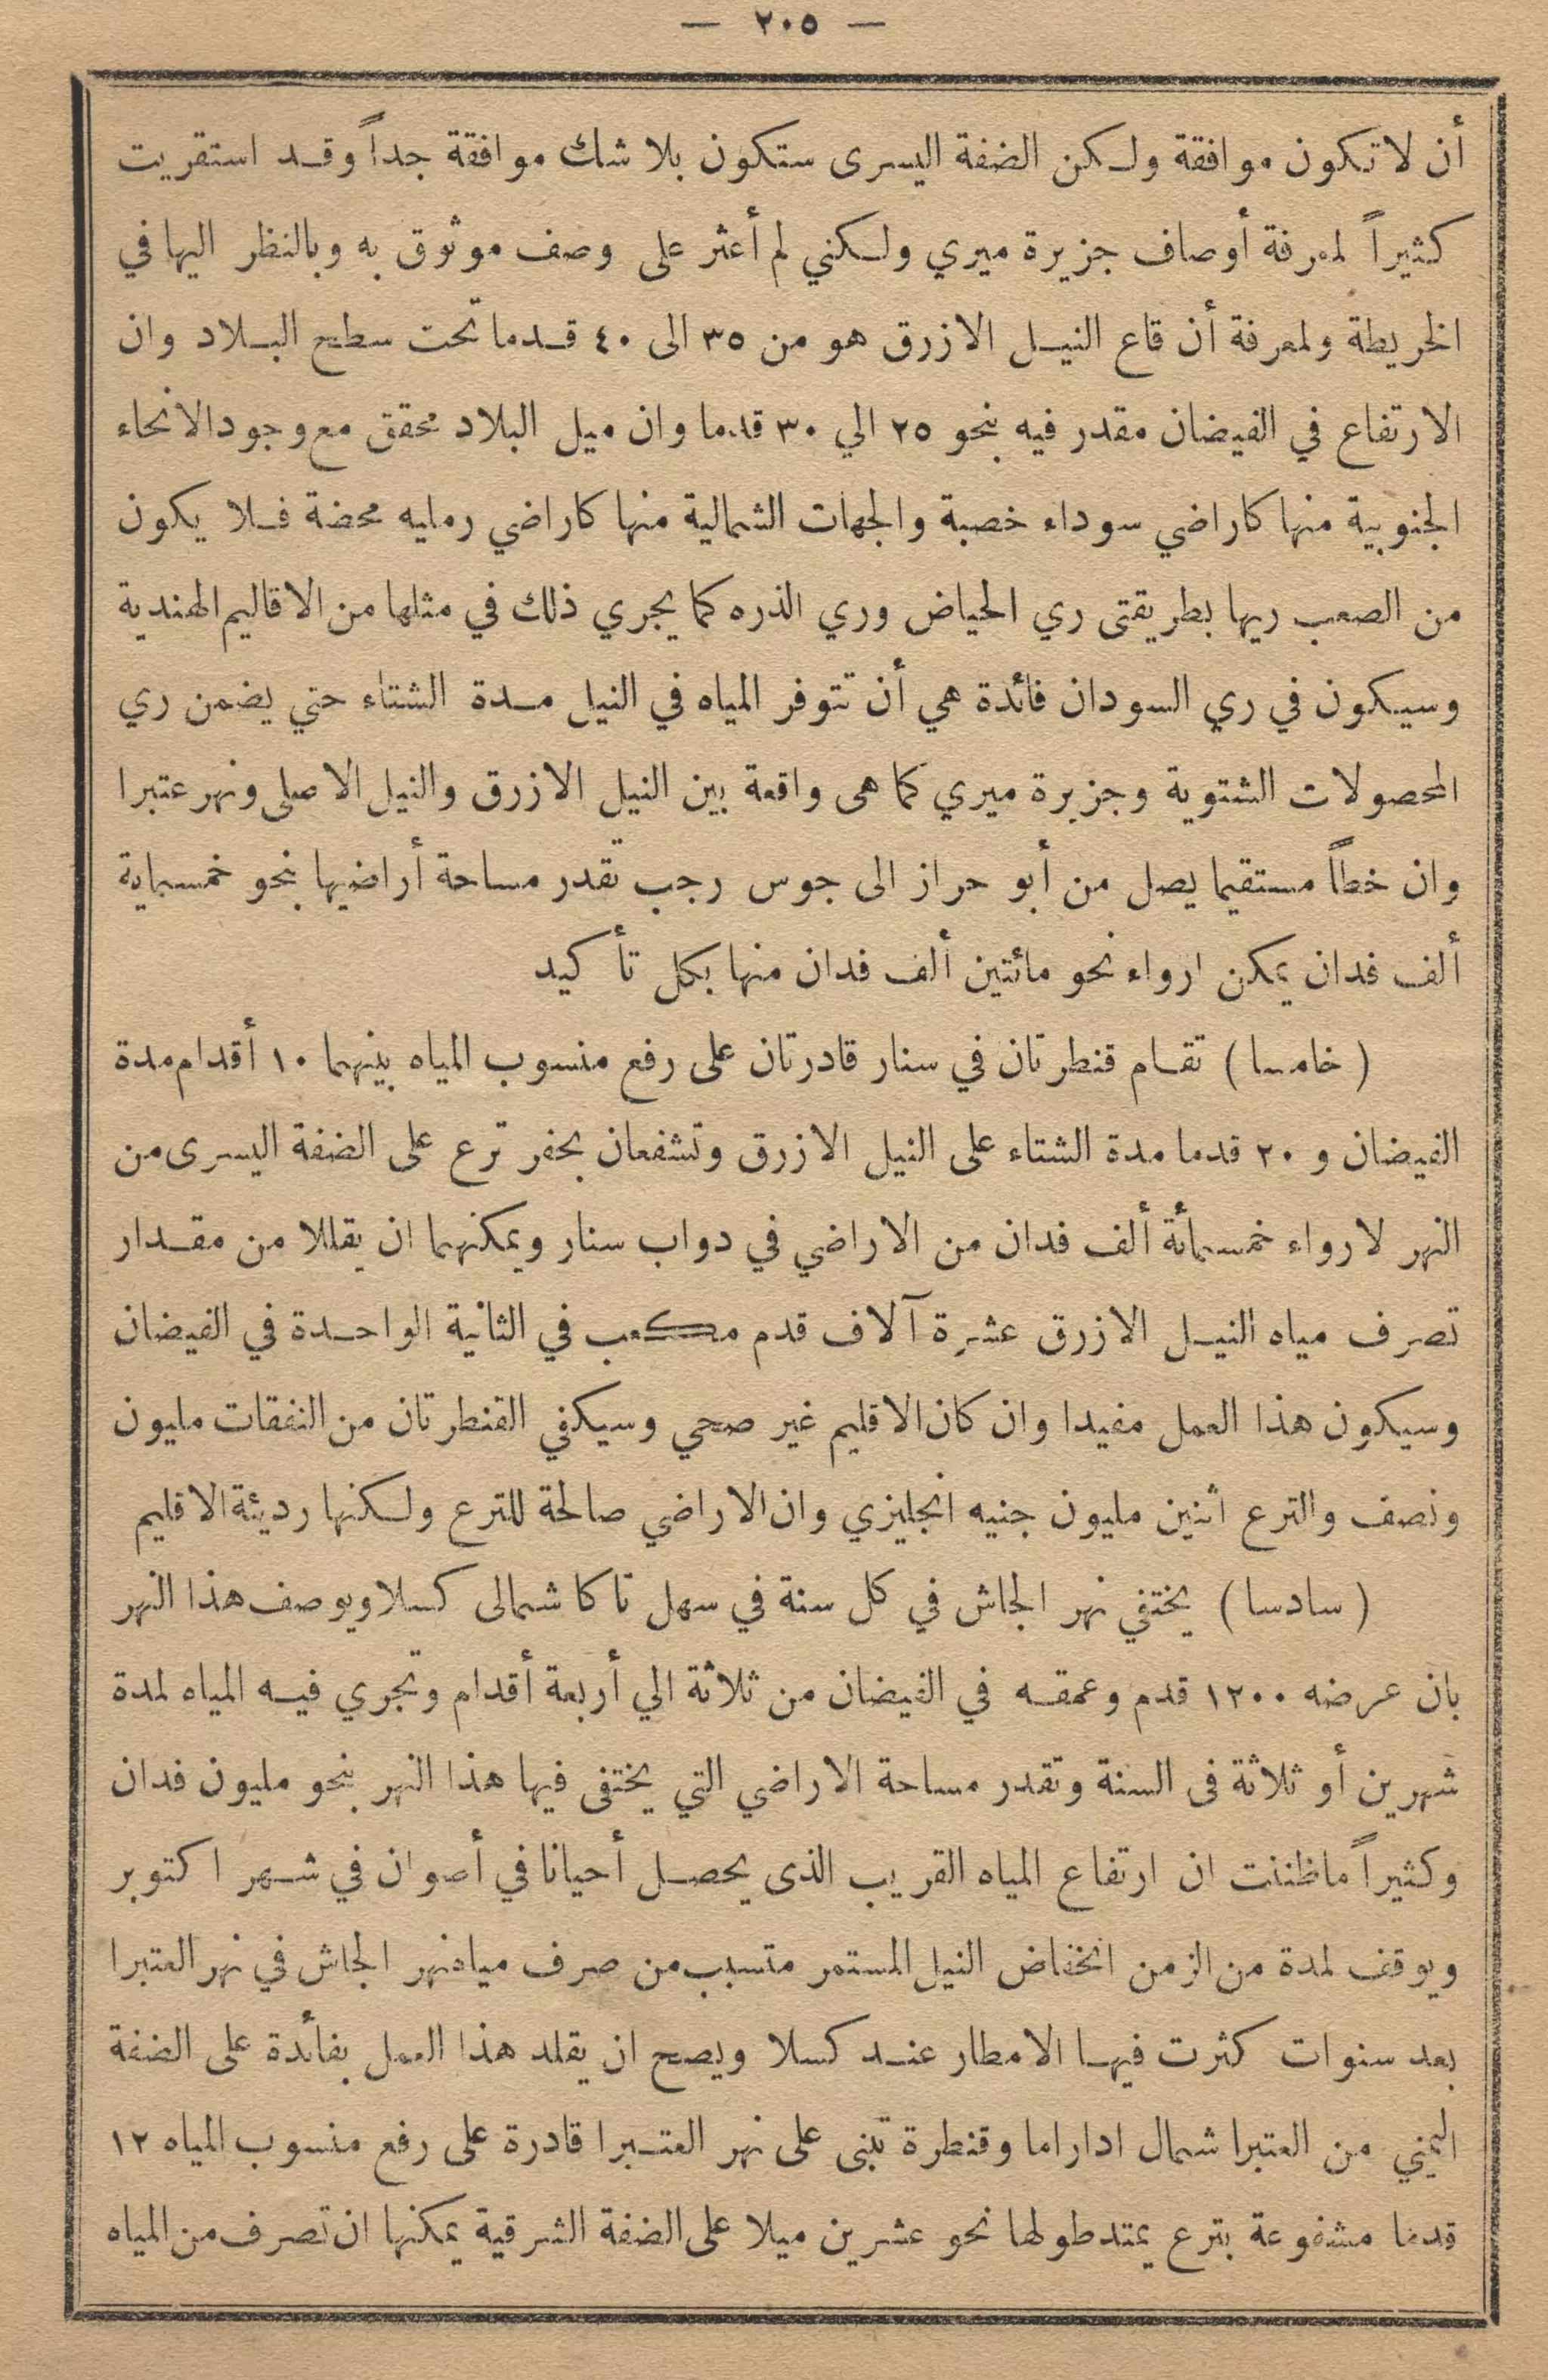 — ٢٠٥ —
أن لا تكون موافقة ولكن الضفة اليسرى ستكون بلا شك موافقة جداً وقد استقريت
كثيراً لمعرفة أوصاف جزيرة ميري ولكني لم أعثر على وصف موثوق به وبالنظر اليها في
الخريطة ولمعرفة أن قاع النيل الازرق هو من ٣٥ الى ٤٠ قدما تحت سطح البلاد وان
الارتفاع في الفيضان مقدر فيه بنحو ٢٥ الي ٣٠ قدما وان ميل البلاد محقق مع وجود الانحاء
الجنوبية منها كاراضي سوداء خصبة والجهات الشمالية منها كاراضي رمليه محضة فلا يكون
من الصعب ريها بطريقتى ري الحياض وري الذره كما يجري ذلك في مثلها من الاقاليم الهندية
وسيكون في ري السودان فائدة هي أن تتوفر المياه في النيل مدة الشتاء حتي يضمن ري
المحصولات الشتوية وجزيرة ميري كما هى واقعة بين النيل الازرق والنيل الاصلى ونهر عتبرا
وان خطاً مستقيما يصل من أبو حراز الى جوس رجب تقدر مساحة أراضيها بنحو خمسماية
ألف فدان يمكن ارواء نحو مائتين ألف فدان منها بكل تأكيد
( خامسا ) تقام قنطرتان في سنار قادرتان على رفع منسوب المياه بينهما ١٠ أقدام مدة
الفيضان و ٢٠ قدما مدة الشتاء على النيل الازرق وتشفعان بحفر ترع على الضفة اليسرى من
النهر لارواء خمسمائة ألف فدان من الاراضي في دواب سنار ويمكنهما ان يقللا من مقدار
تصرف مياه النيل الازرق عشرة آلاف قدم مكعب في الثانية الواحدة في الفيضان
وسيكون هذا العمل مفيدا وان كان الاقليم غير صحي وسيكفي القنطرتان من النفقات مليون
ونصف والترع اثنين مليون جنيه انجليزي وان الاراضي صالحة للترع ولكنها رديئة الاقليم
( سادسا ) يختفي نهر الجاش في كل سنة في سهل تاكا شمالى كسلا ويوصف هذا النهر
بان عرضه ١٢٠٠ قدم وعمقه في الفيضان من ثلاثة الي أربعة أقدام وتجري فيه المياه لمدة
شهرين أو ثلاثة فى السنة وتقدر مساحة الاراضي التي يختفى فيها هذا النهر بنحو مليون فدان
وكثيراً ماظننت ان ارتفاع المياه القريب الذى يحصل أحيانا في أصوان في شهر اكتوبر
ويوقف لمدة من الزمن انخفاض النيل المستمر متسبب من صرف مياه نهر الجاش في نهر العتبرا
بعد سنوات كثرت فيها الامطار عند كسلا ويصح ان يقلد هذا العمل بفائدة على الضفة
اليمني من العتبرا شمال اداراما وقنطرة تبنى على نهر العتبرا قادرة على رفع منسوب المياه ١٢
قدما مشفوعة بترع يمتد طولها نحو عشرين ميلا على الضفة الشرقية يمكنها ان تصرف من المياه